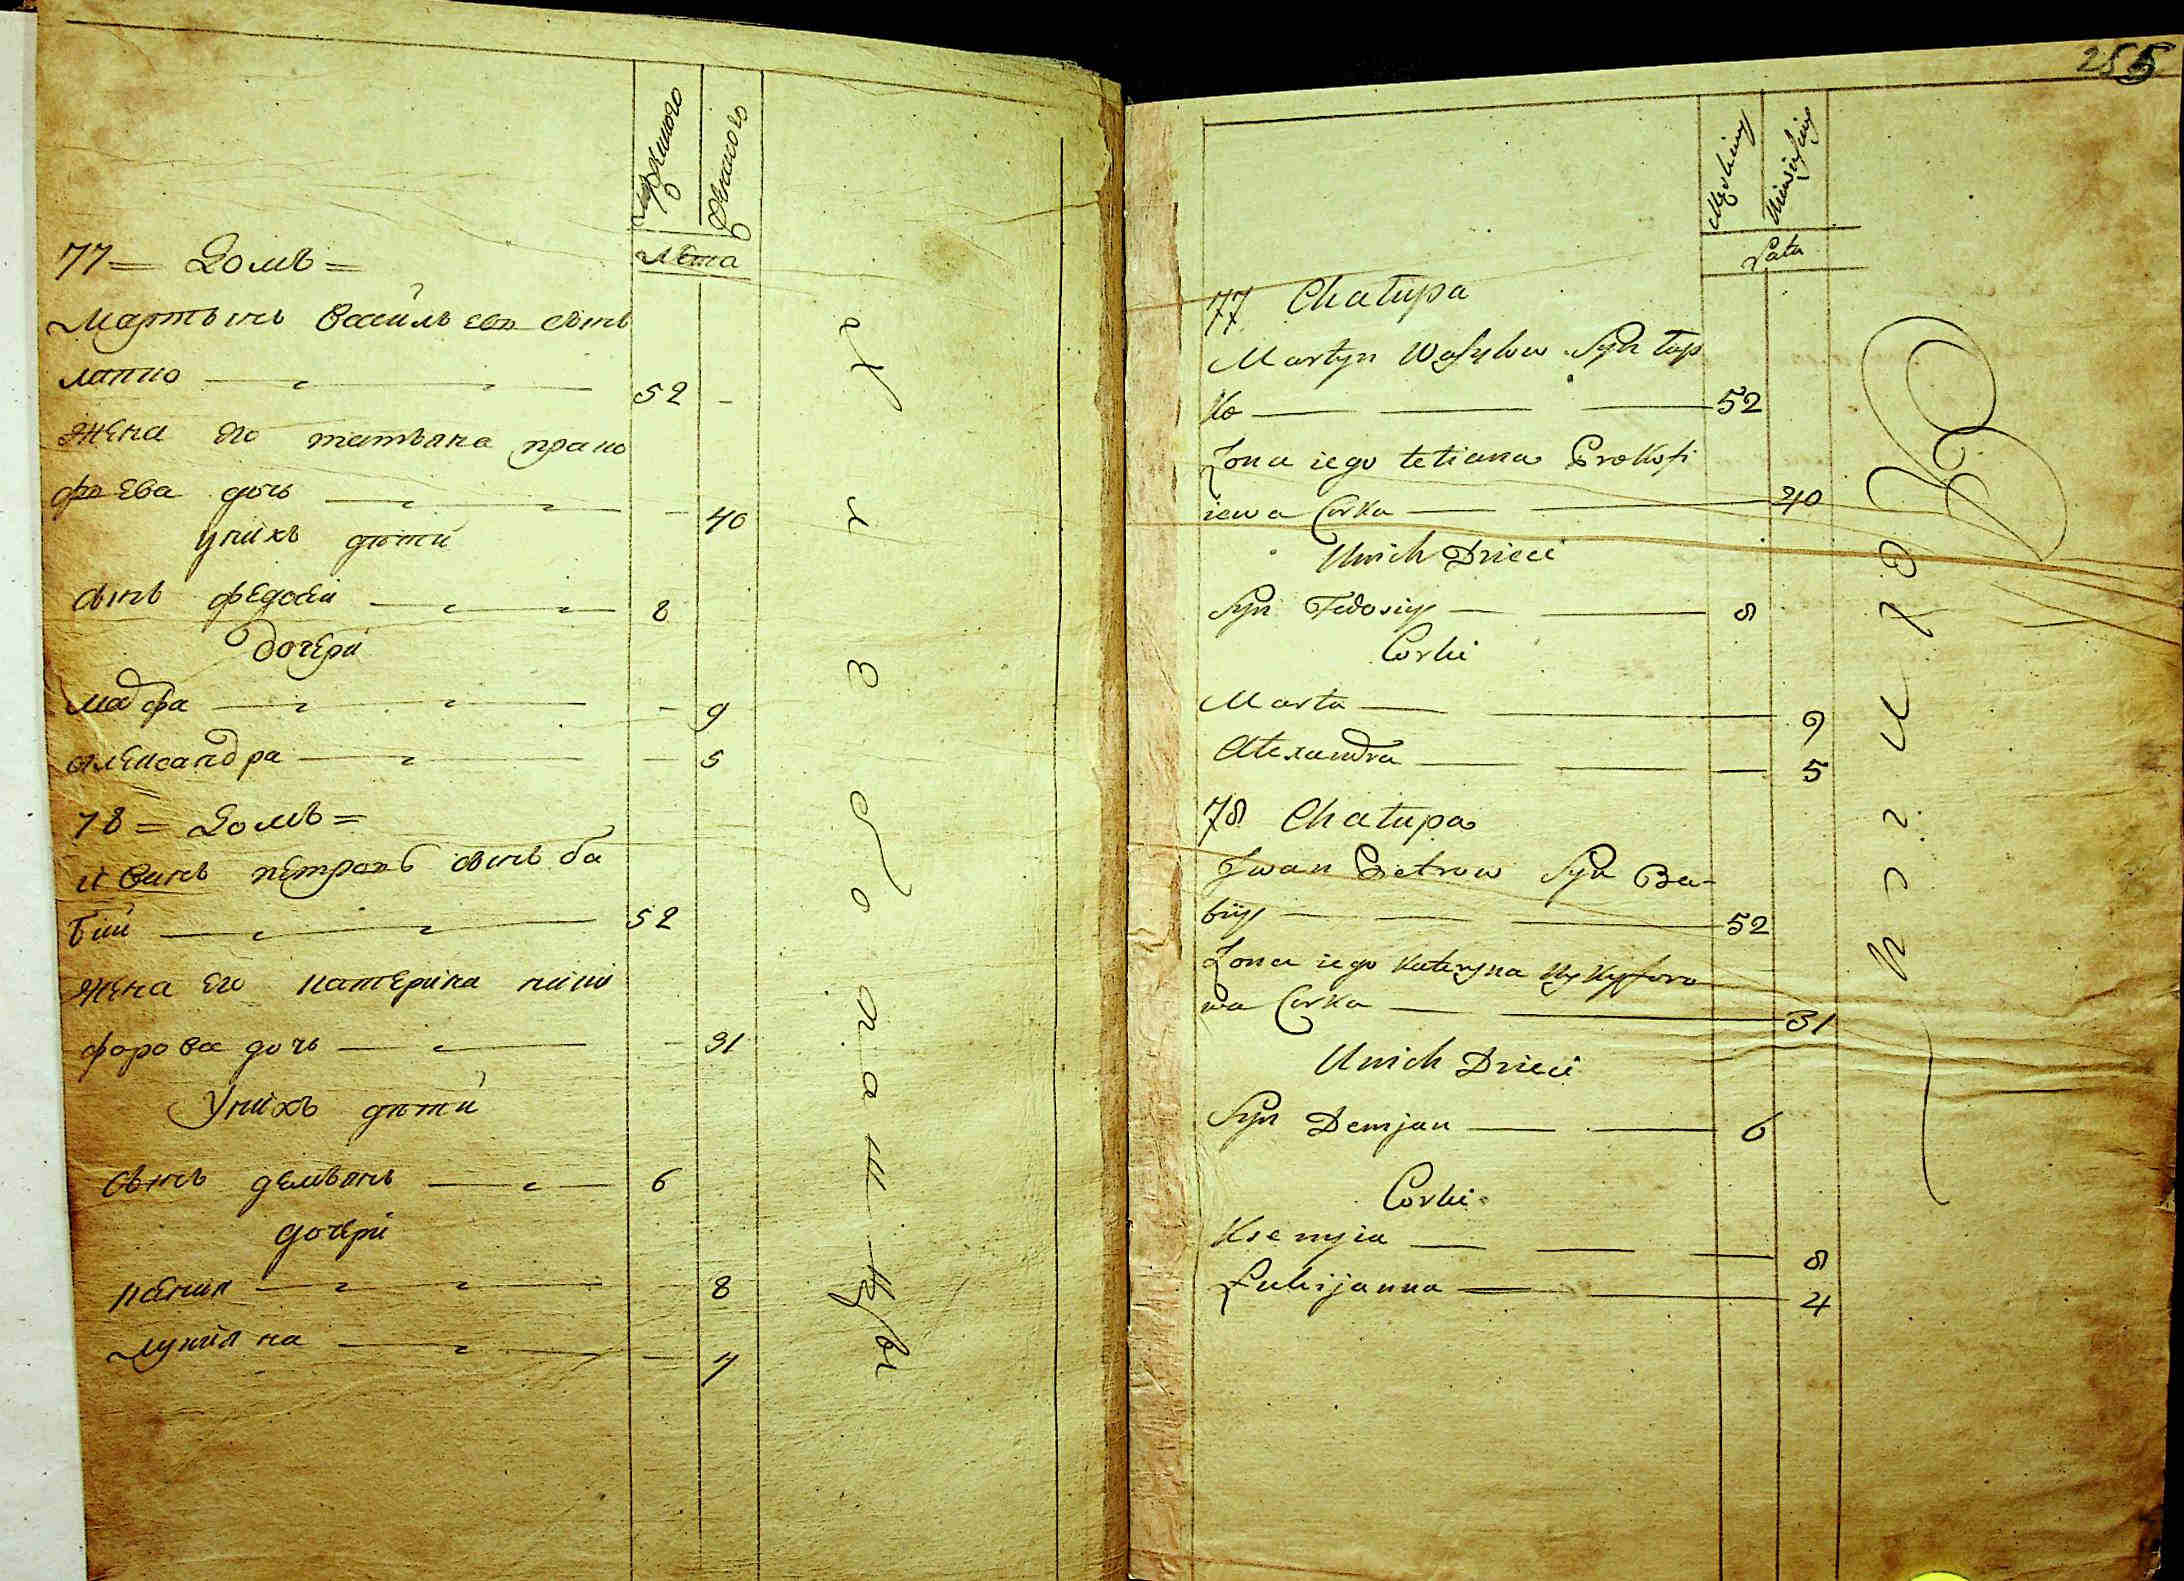 мужеского
женского
лѣта
77 = Домъ =
Мартынъ васильевъ сынъ
лапко 52
жена его татьяна проко
фьева дочь 40
у нихъ дѣти
сынъ федосей 8
дочери
марфа 9
александра 5
78 = Домъ =
иванъ петровъ сынъ ба
бий 52
жена его катерина ники
форова дочь 31
У нихъ дѣти
сынъ демьянъ 6
дочери
8
лукияна 4
255
Lata
77 Chałupa
Martyn Wasylow Syn Łap
ko 52
Żona iego tetiana Prokofi
iewa Corka 40
Unich Dzieci
Syn Fedosiy 8
Corki
Marta 9
Alexandra 5
78 Chałupa
Jwan Pietrow Syn Ba-
biy 52
Żona iego Kateryna Nykyforo
wa Corka 31
Unich Dzieci
Syn Demjan 6
Corki
Ksenyia 8
Lukijanna 4